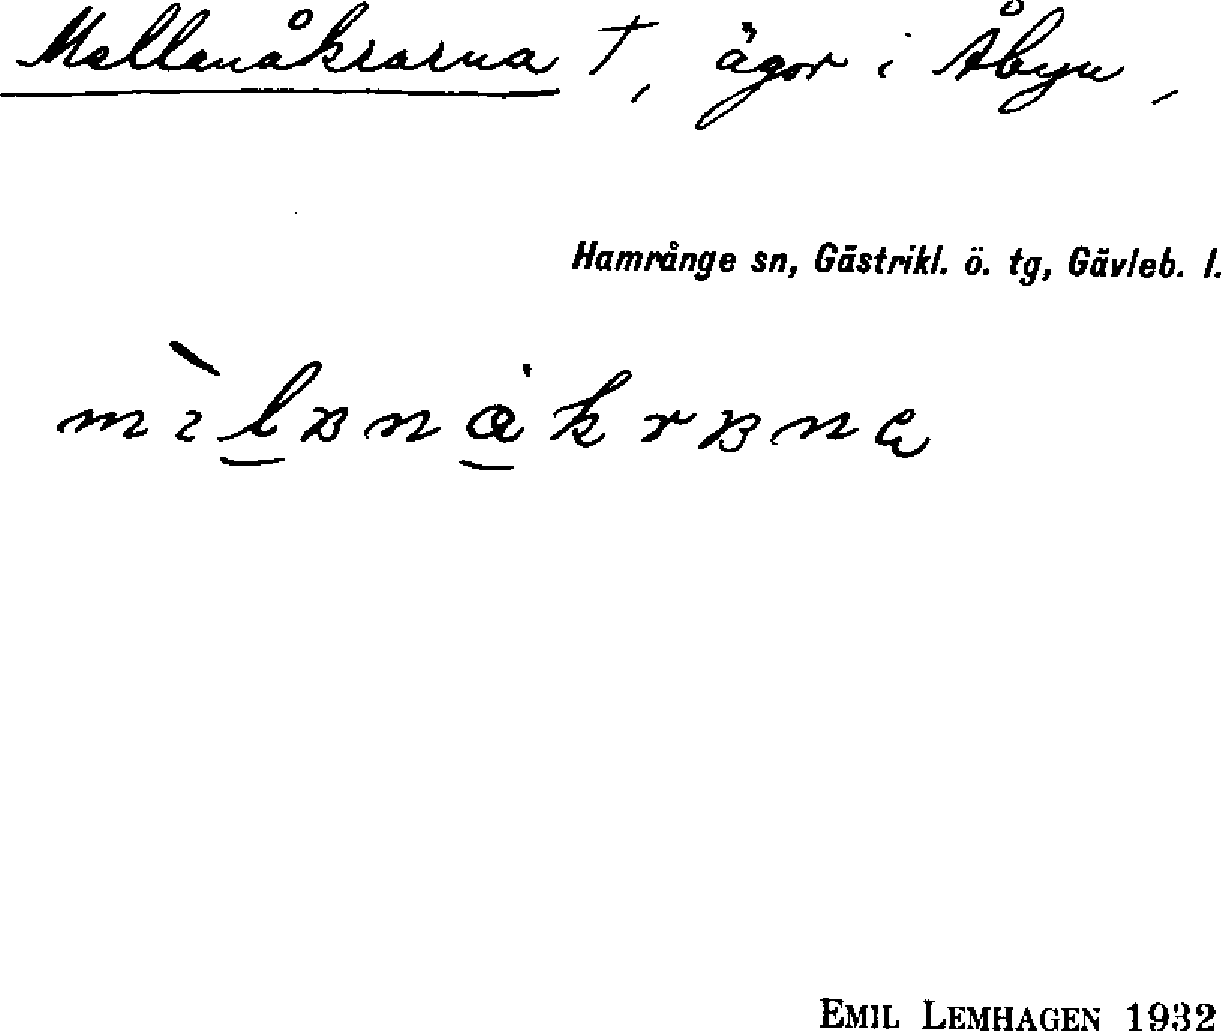 Mellanåkrarna †, ägor i Åbyn,
Hamrånge sn, Gästrikl. ö. tg, Gävleb. l.
EMIL LEMHAGEN 1932